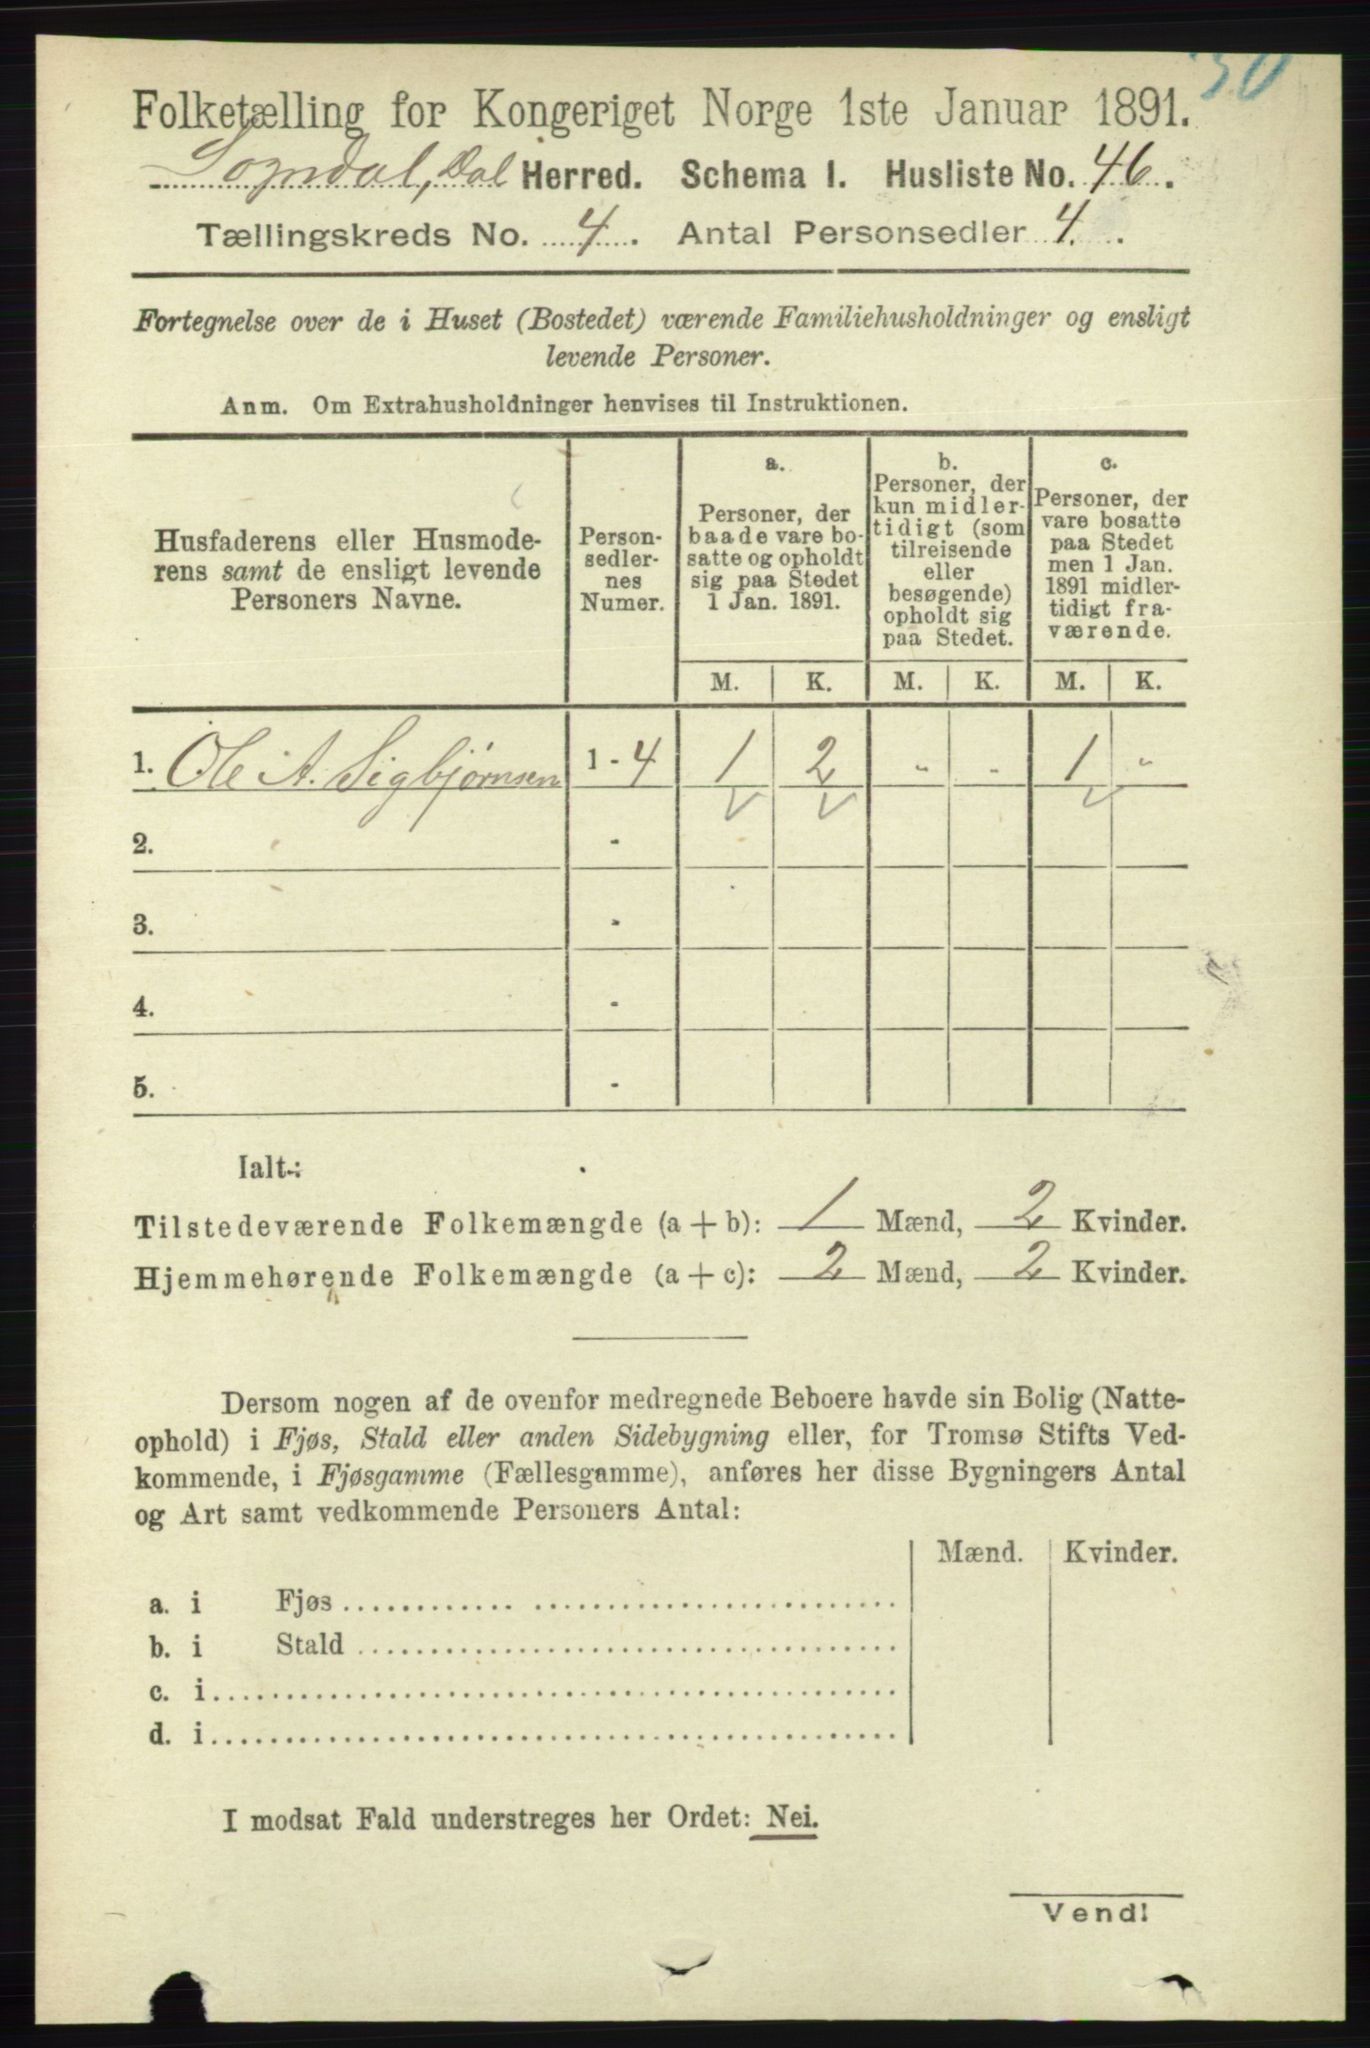 50
Folketælling for Kongeriget Norge 1ste Januar 1891.
Sogndal, Dal Herred. Schema I. Husliste No. 46.
Tællingskreds No. 4. Antal Personsedler 4.
Fortegnelse over de i Huset (Bostedet) værende Familiehusholdninger og ensligt
levende Personer.
Anm. Om Extrahusholdninger henvises til Instruktionen.
Husfaderens eller Husmode-
rens samt de ensligt levende
Personers Navne.
Person-
sedler-
nes
Numer.
a.
Personer, der
baade vare bo-
satte og opholdt
sig paa Stedet
1 Jan. 1891.
b.
Personer, der
kun midler-
tidigt (som
tilreisende
eller
besøgende)
opholdt sig
paa Stedet.
c.
Personer, der
vare bosatte
paa Stedet
men 1 Jan.
1891 midler-
tidigt fra-
værende.
M. K. M. K. M. K.
1. Ole A. Sigbjørnsen 1 - 4 1 2 - - 1 -
2. -
3. -
4. -
5. -
Ialt:
Tilstedeværende Folkemængde (a + b): 1 Mænd, 2 Kvinder.
Hjemmehørende Folkemængde (a + c): 2 Mænd, 2 Kvinder.
Dersom nogen af de ovenfor medregnede Beboere havde sin Bolig (Natte-
ophold) i Fjøs, Stald eller anden Sidebygning eller, for Tromsø Stifts Ved-
kommende, i Fjøsgamme (Fællesgamme), anføres her disse Bygningers Antal
og Art samt vedkommende Personers Antal:
Mænd. Kvinder.
a. i Fjøs
b. i Stald
c. i
d. i
I modsat Fald understreges her Ordet: Nei.
Vend!